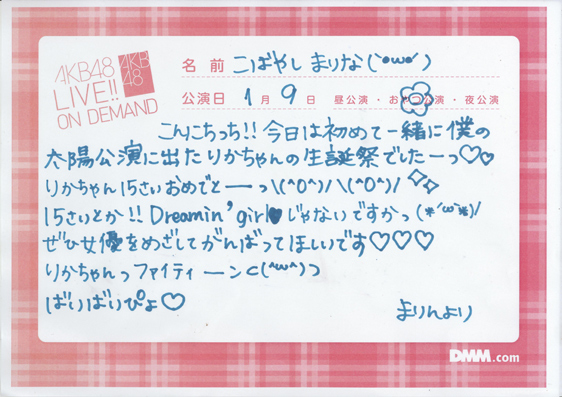 AKB48
LIVE!!
ON DEMAND
AKB
48
名前 こばやし まりな(`・ω・´)
公演日 1月9日 昼公演・おやつ公演・夜公演
こんにちっち!! 今日は初めて一緒に僕の
太陽公演に出たりかちゃんの生誕祭でしたーっ♡♡
りかちゃん15さいおめでとーーっ\(^O^)/\(^O^)/
15さいとか!! Dreamin' girl♥じゃないですかっ(*´ω`*)/
ぜひ女優をめざしてがんばってほしいです♡♡♡
りかちゃんっファイティーンc(^ω^)っ
ばいばいぴょ♡
まりんより
DMM.com